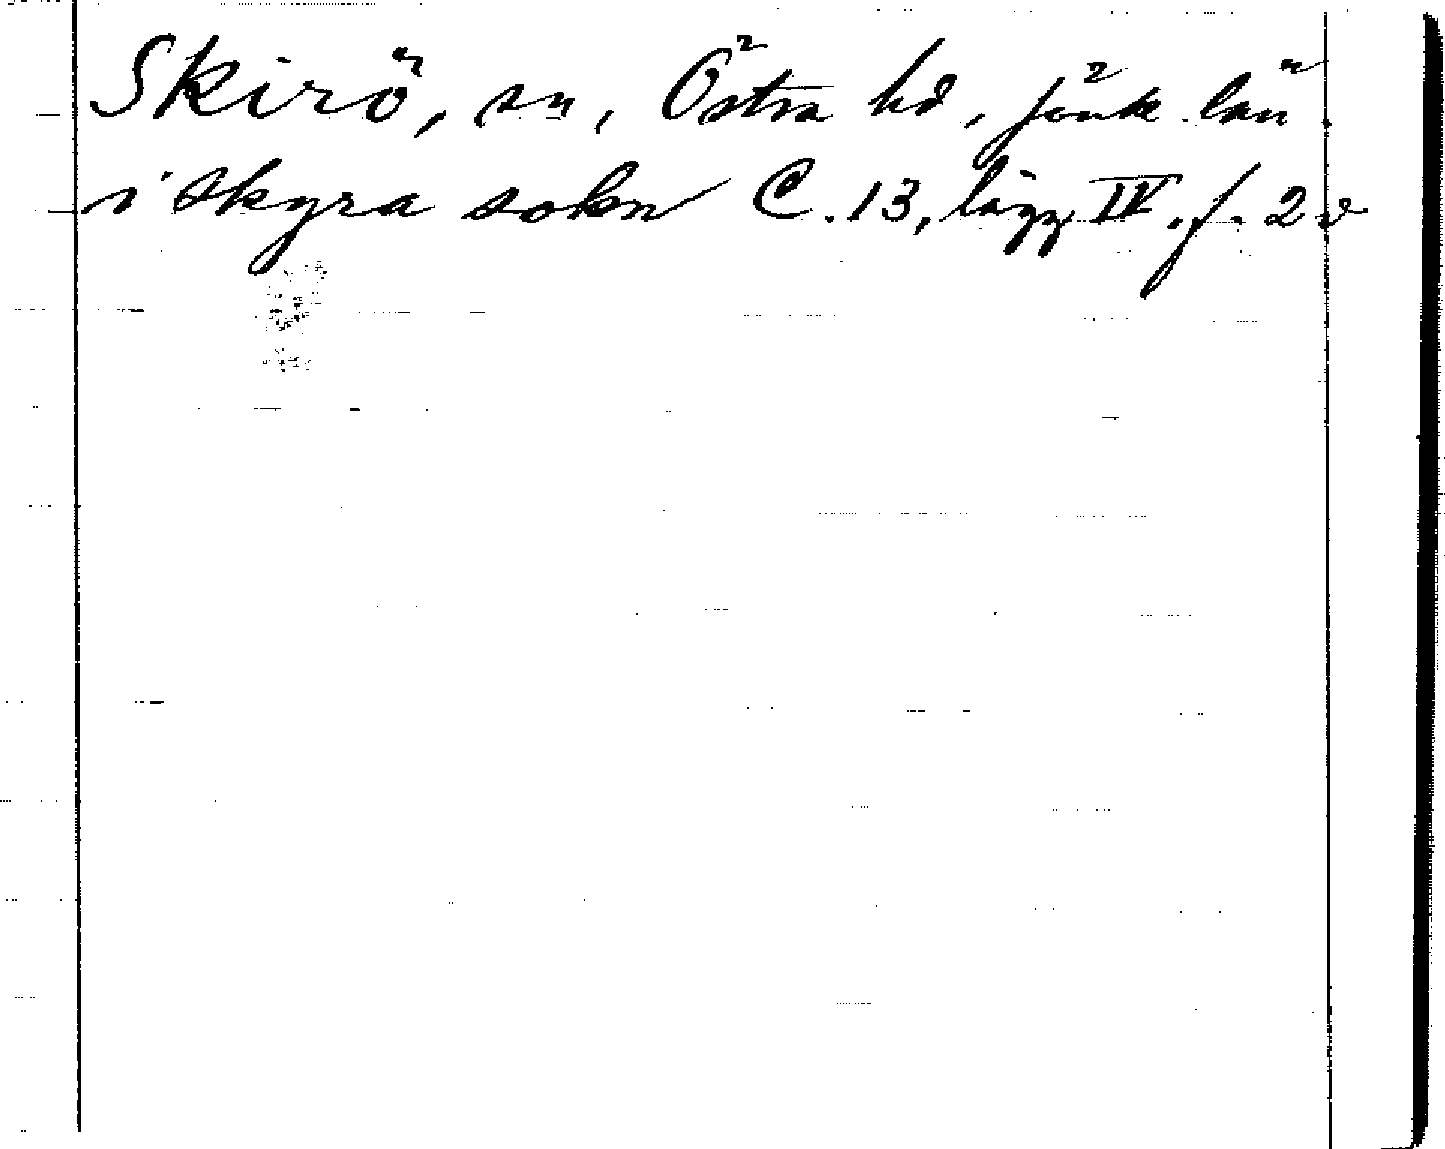 Skirö, sn, Östra hd, Jönk. län.
i Skyra sokn C. 13, lägg IV. f. 2 v